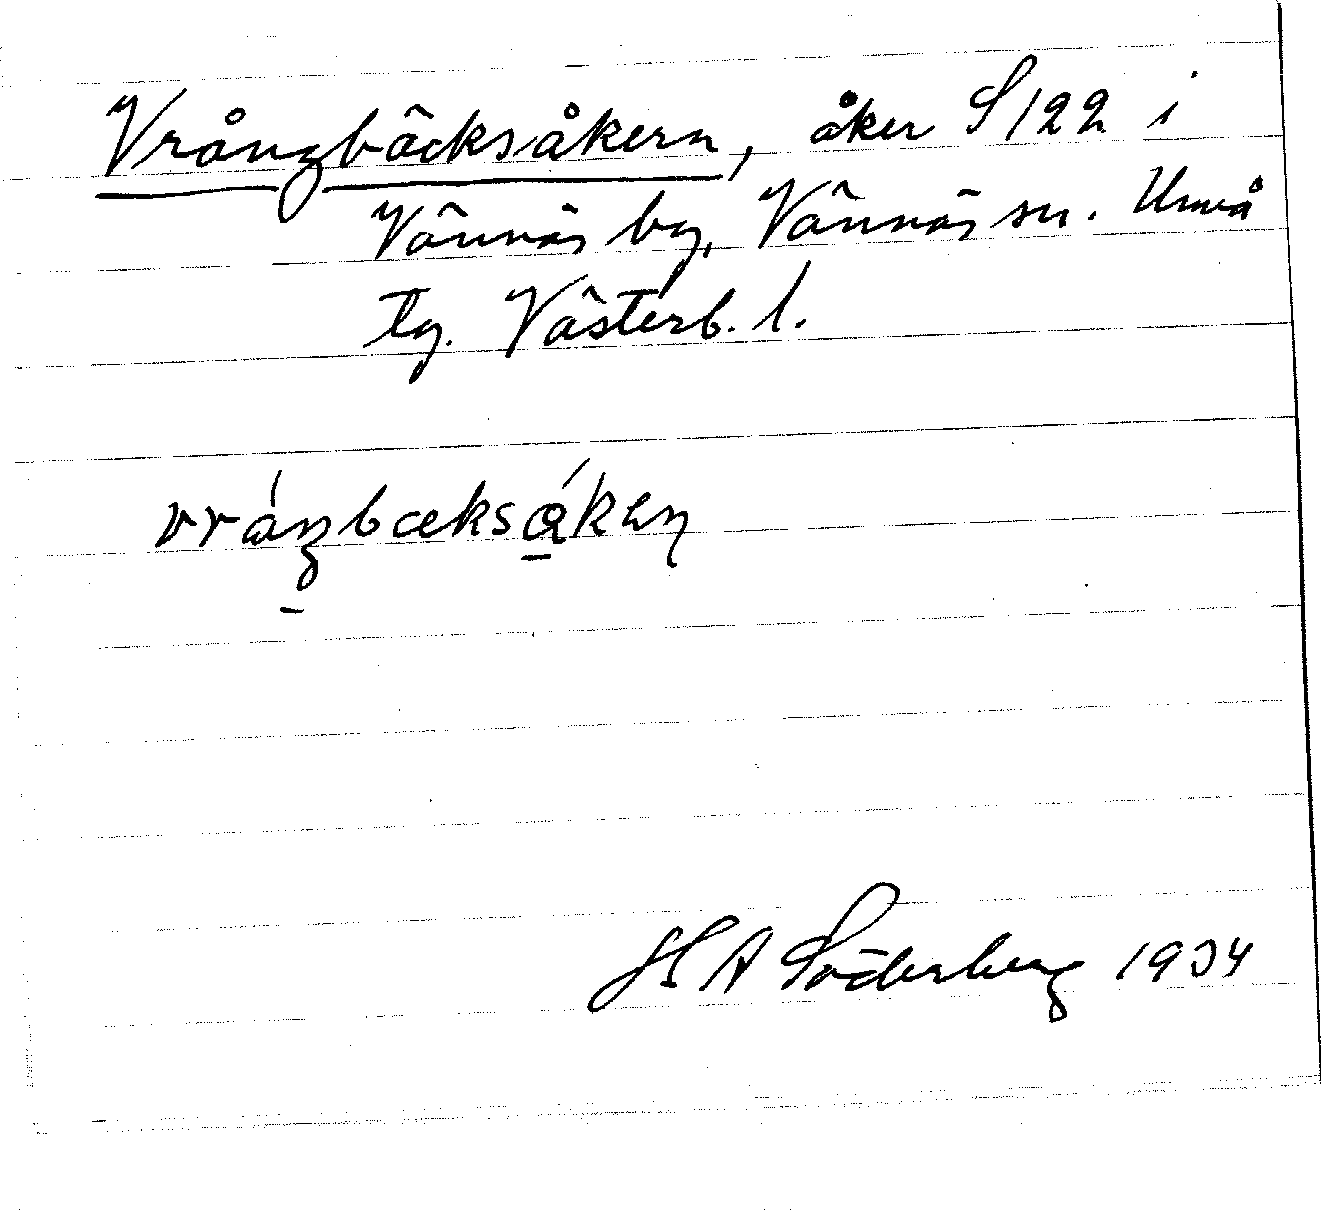 Vrångbäcksåkern, åker S122 i
Vännäs by, Vännäs sn. Umeå
tg. Västerb. l.
vråŋbæksåkɐn
H A Söderberg 1934